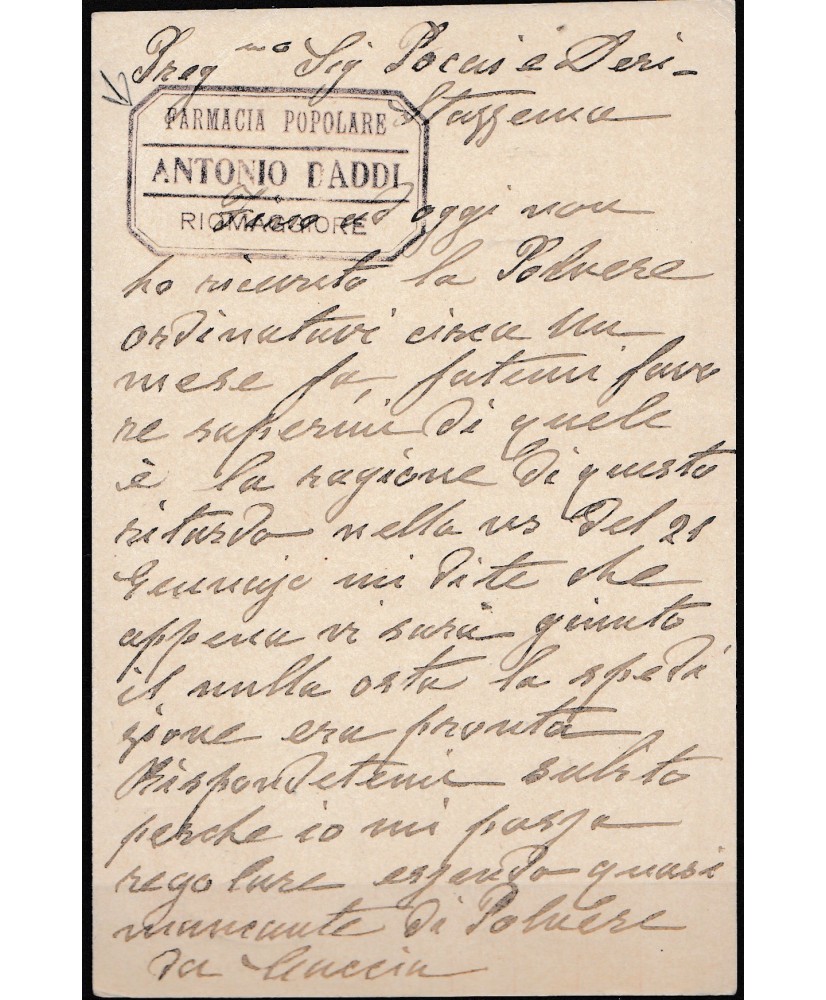 Preg mo Sig Pocai e Deri-
Stazzema
FARMACIA POPOLARE
ANTONIO DADDI
RIOMAGGIORE
Fino ad oggi non
ho ricevuto la Polvere
ordinatavi circa un
mese fa, fatemi favo
re sapermi di quele
è la ragione di questo
ritardo nella vs del 21
Gennajo mi dite che
appena vi sarà giunto
il nulla osta la spedi
zione era pronta
Rispondetemi subito
perche io mi possa
regolare essendo quasi
mancante di Polvere
da Caccia